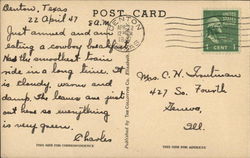 POST CARD
Denton, Texas
22 April 47
8 A.M.
Just arrived and am
eating a cowboy breakfast
Had the smoothest train
ride in a long time. It
is cloudy, warm and
damp. The leaves are just
out here so everything
is very green.
Charles
THIS SIDE FOR CORRESPONDENCE
DENTON
1 CENT 1
Mrs. C. H. Troutman
427 So. Fourth
Geneva,
Ill.
THIS SIDE FOR ADDRESS